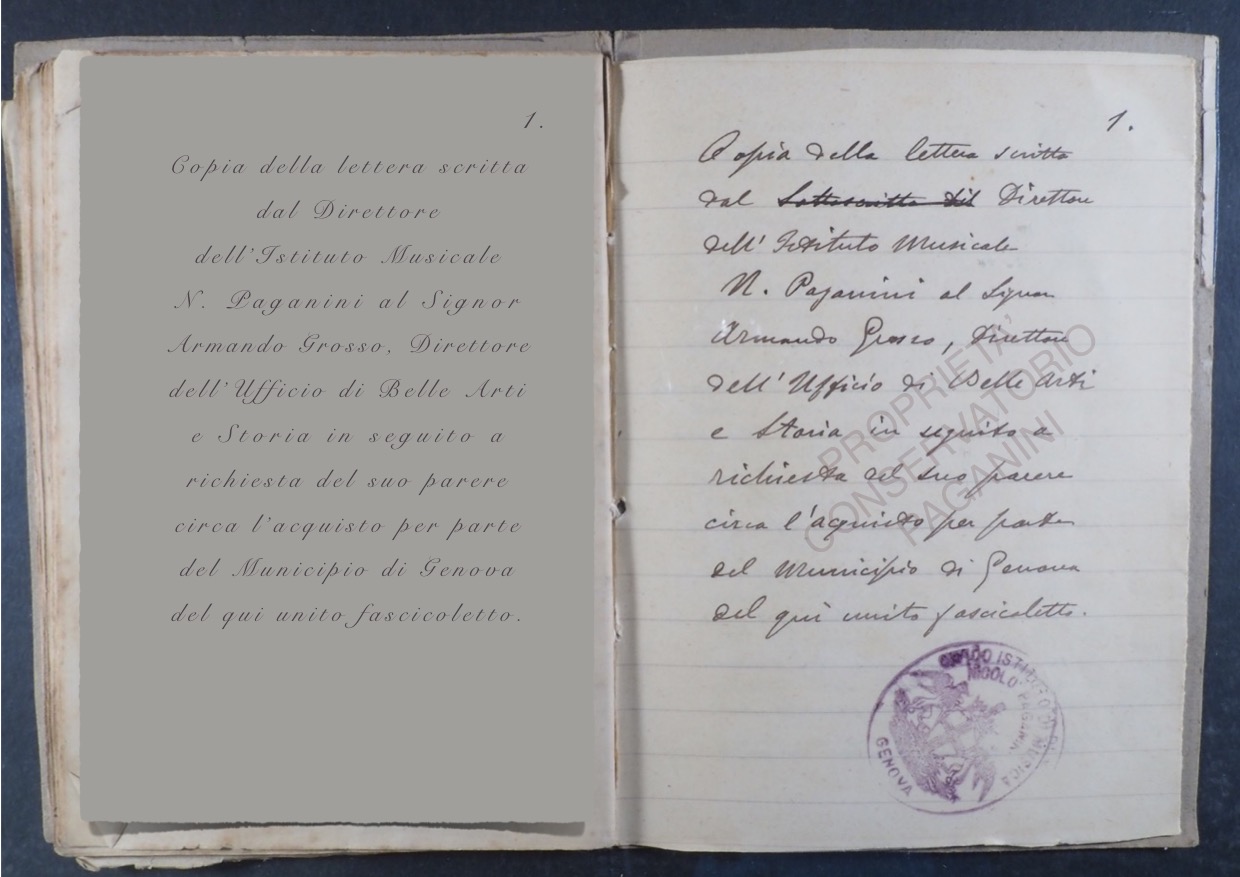 1.
Copia della lettera scritta
dal Direttore
dell'Istituto Musicale
N. Paganini al Signor
Armando Grosso, Direttore
dell'Ufficio di Belle Arti
e Storia in seguito a
richiesta del suo parere
circa l'acquisto per parte
del Municipio di Genova
del qui unito fascicoletto.
1.
Copia della lettera scritta
dal Sottoscritto Direttore
dell'Istituto Musicale
N. Paganini al Signor
Armando Grosso, Direttore
dell'Ufficio di Belle Arti
e Storia in seguito a
richiesta del suo parere
circa l'acquisto per parte
del Municipio di Genova
del qui unito fascicoletto.
PROPRIETA'
CONSERVATORIO
PAGANINI
ISTITUTO DI MUSICA
NICOLO' PAGANINI
GENOVA